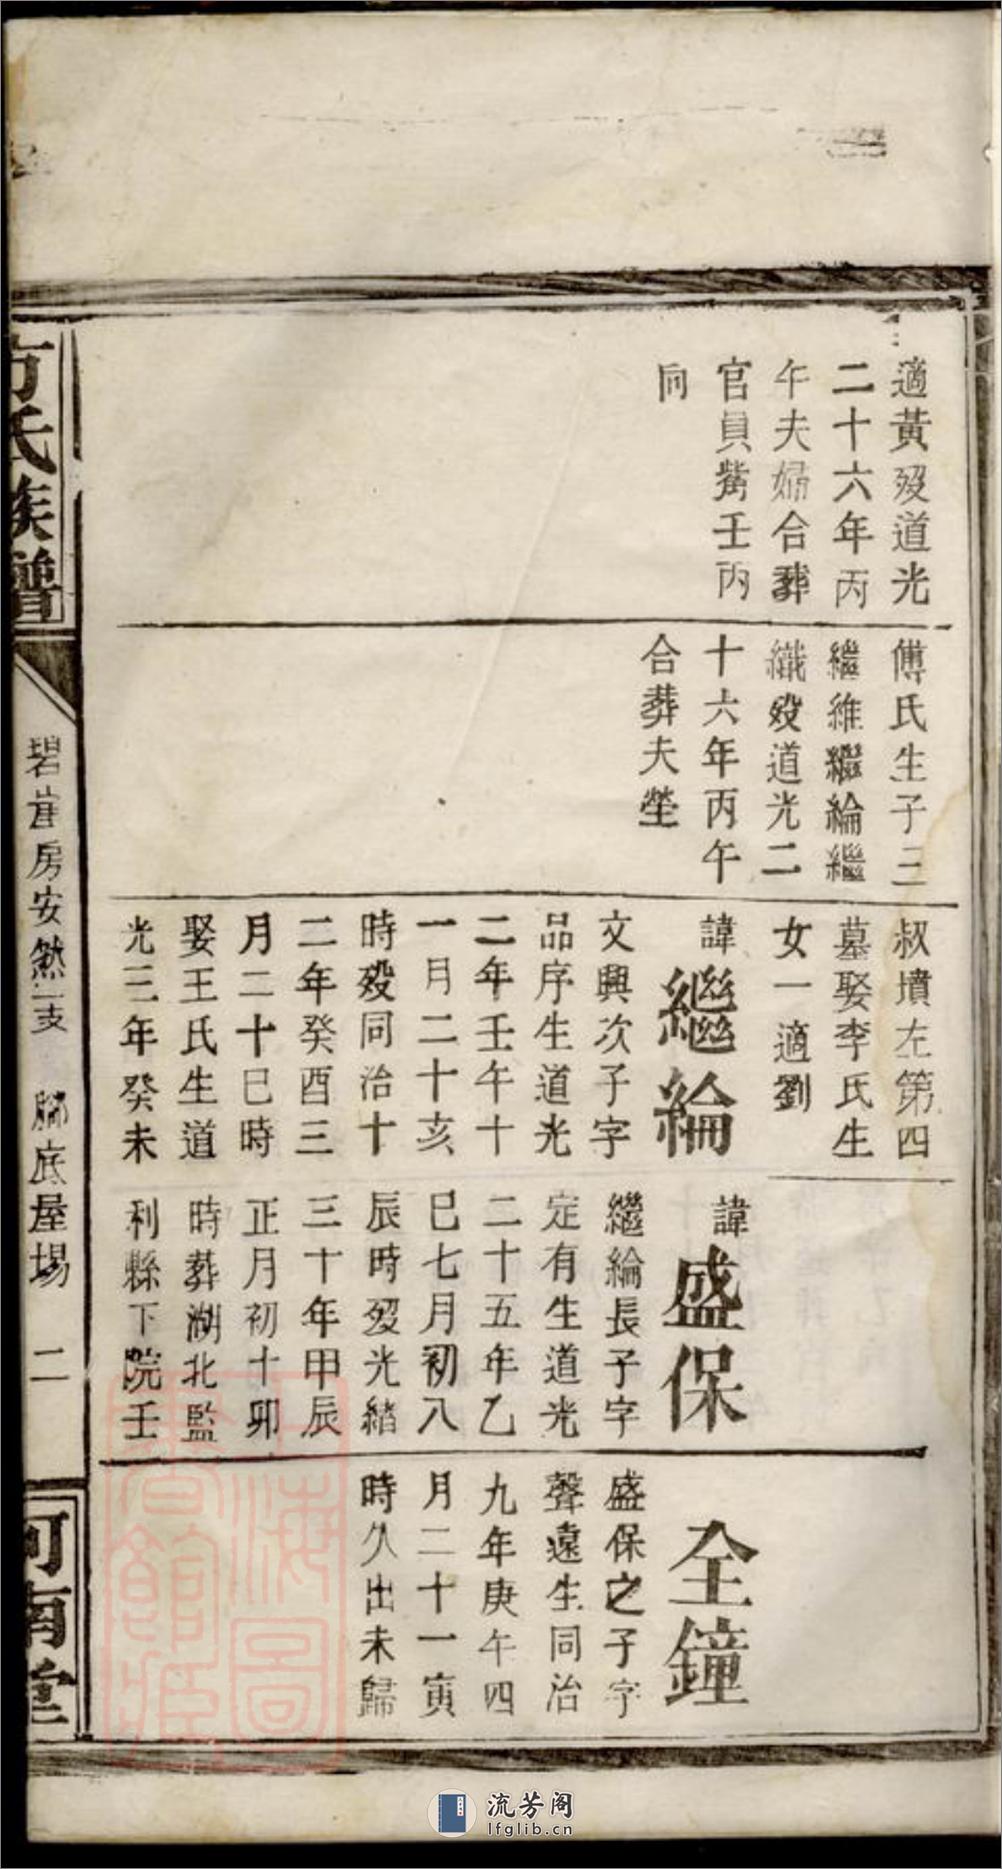 適黃歿道光
二十六年丙
午夫婦合葬
官員觜壬丙
向
傅氏生子三
繼維繼綸繼
纖歿道光二
十六年丙午
合葬夫塋
叔墳左第四
墓娶李氏生
女一適劉
諱繼綸
文興次子字
品序生道光
二年壬午十
一月二十亥
時歿同治十
二年癸酉三
月二十巳時
娶王氏生道
光三年癸未
諱盛保
繼綸長子字
定有生道光
二十五年乙
巳七月初八
辰時歿光緒
三十年甲辰
正月初十卯
時葬湖北監
利縣下院壬
全鐘
盛保之子字
聲遠生同治
九年庚午四
月二十一寅
時久出未歸
方氏族譜
碧崖房安然支 腳底屋場 二
河南堂
上海圖書館藏
流芳阁
lfglib.cn